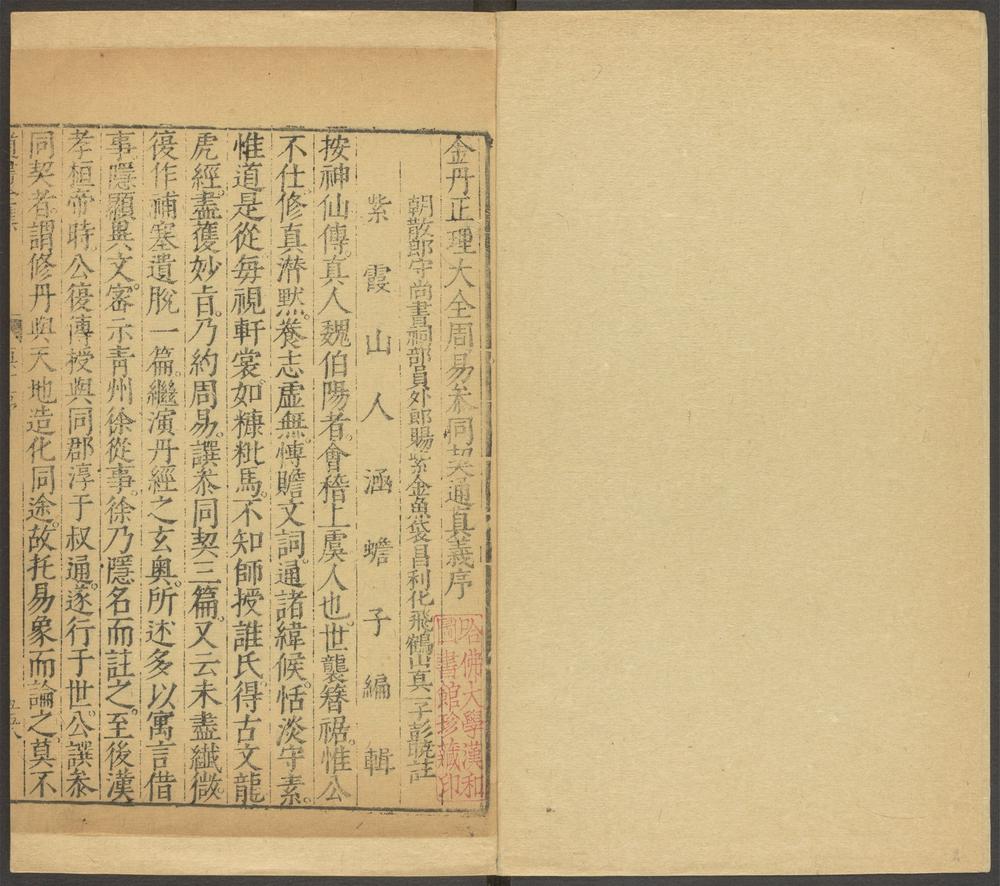 金丹正理大全周易叅同契通真義序
朝散郎守尚書祠部員外郎賜紫金魚袋昌利化飛鶴山真一子彭曉註
紫霞山人涵蟾子編輯
按神仙傳。真人魏伯陽者。會稽上虞人也。世襲簪裾。惟公
不仕。修真潛默。養志虛無。愽贍文詞。通諸緯候。恬淡守素。
惟道是從。每視軒裳如糠粃焉。不知師授誰氏。得古文龍
虎經。盡獲妙㫖。乃約周易。譔叅同契三篇。又云未盡纖微。
復作補塞遺脫一篇。繼演丹經之玄奥。所述多以寓言借
事。隱顯異文。宻示青州徐從事。徐乃隱名而註之。至後漢
孝桓帝時。公復傳授與同郡淳于叔通。遂行于世。公譔叅
同契者。謂修丹與天地造化同途。故托易象而論之。莫不
哈佛大學漢和
圖書館珍藏印